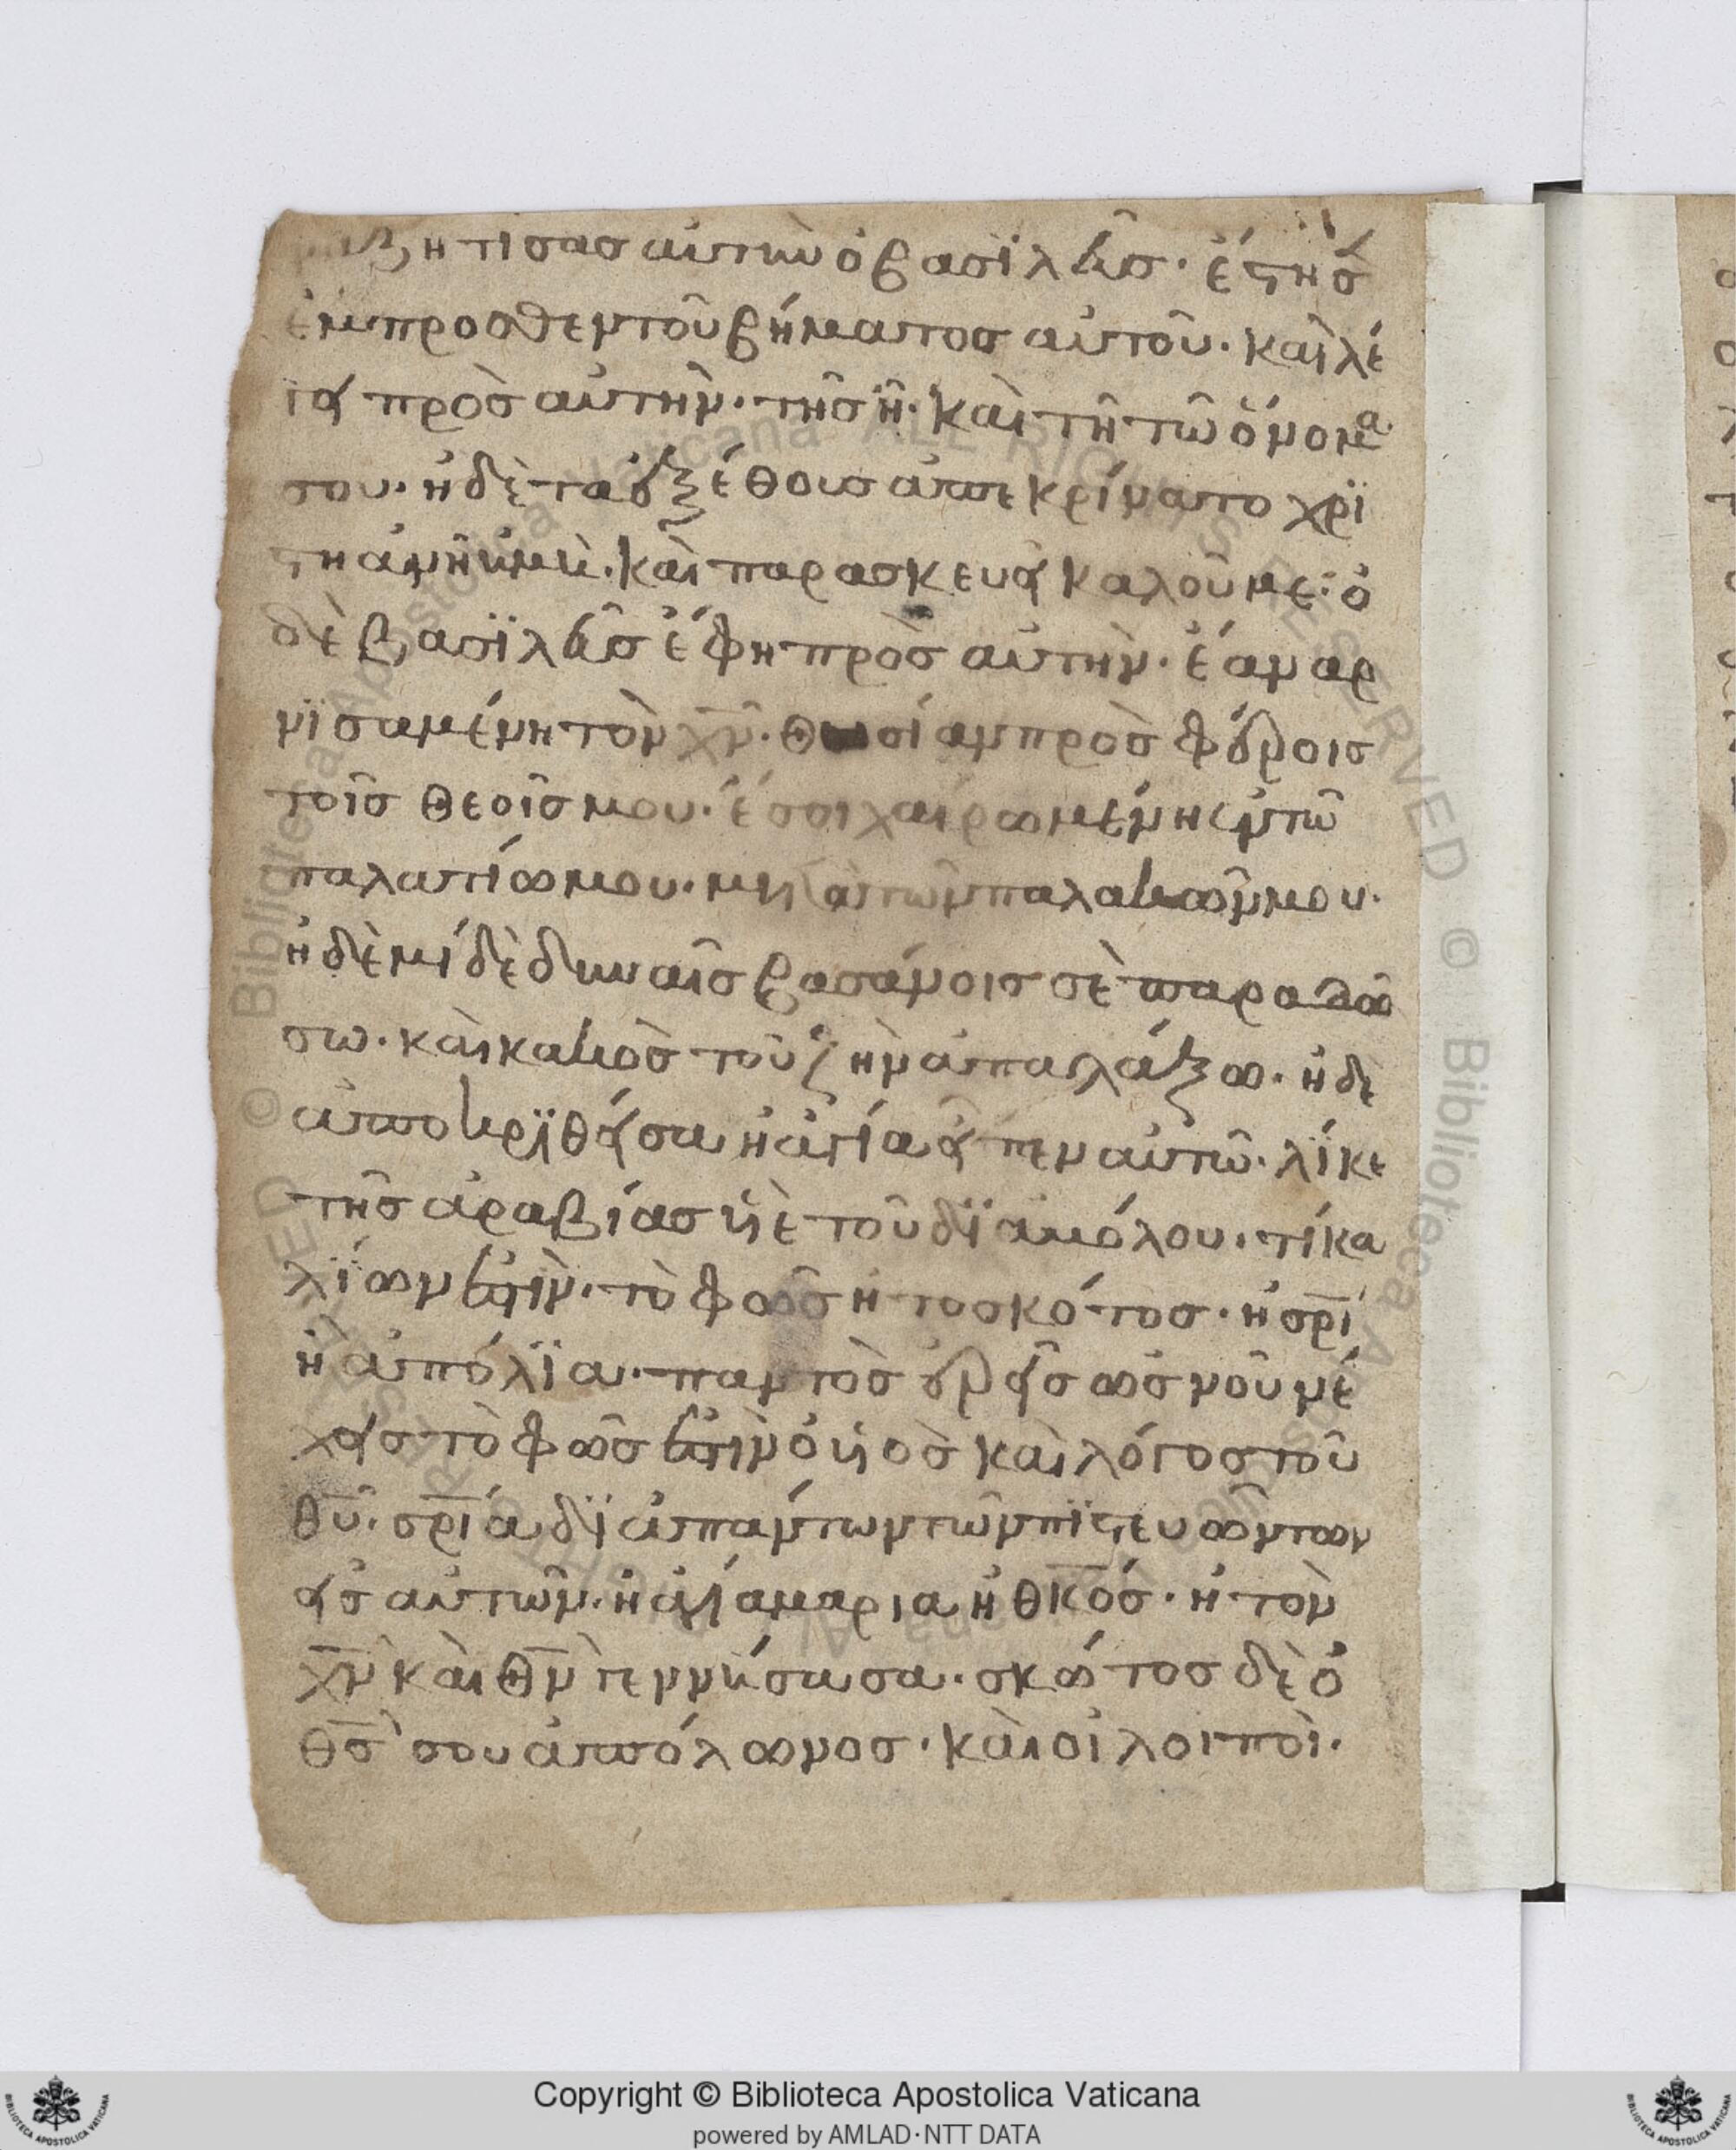 ζητισασ αὐτὴν ὁ βασϊλεῦσ· ἔστησ
ἔμπροσθεν τοῦ βήματοσ αὐτοῦ· καὶ λέ
γει πρὸσ αὐτήν· τῆσ ἦ· καὶ τῆ τῶ ὄνομα
σου· ἡ δὲ ταύξέθοισ ἀπεκρίνατο χρϊ
στηανὴ ὑμὴ· καὶ παρασκευεῖ καλοῦμε· ὁ
δὲ βασϊλεῦσ ἔφη πρὸσ αὐτὴν· ἐὰν αρ
νϊσαμένη τὸν χν· θυσίαν πρὸσ φέροισ
τοῖσ θεοῖσ μου· ἔσσι χαιρωμένη ἐν τῶ
παλατίω μου· μετὰ τῶν παλακῶν μου·
ἡ δὲ μί δὲ δυναῖσ βασάνοισ σὲ παραδώ
σω· καὶ κακὸσ τοῦ ζῆν ἀπαλλάξω· ἡ δὲ
ἀποκρϊθεῖσα ἡ ἁγία εἶπεν αὐτῶ· λΐκε
τῆσ ἀραβίασ ὑὲ τοῦ δϊαβόλου· τί κα
λΐων ἐστὶν· τὸ φῶσ ἢ το σκότοσ· ἡ σρΐ
ἢ ἀπόλϊα· παντὸσ ἐρεῖσ ὡσ νοῦν έ
χεισ τὸ φῶσ ἐστὶν ὁ ὑὸσ καὶ λόγοσ τοῦ
θυ· σρία δϊ ἁπάντων τῶν πϊστευῶντων
εἰσ αὐτῶν· ἡ ἁγία μαρια ἡ θκόσ· ἡ τὸν
χν καὶ θν γεννήσασα· σκώτοσ δὲ ὁ
θσ σου ἀπόλωνοσ· καὶ οἱ λοιποὶ·
Copyright © Biblioteca Apostolica Vaticana
powered by AMLAD·NTT DATA